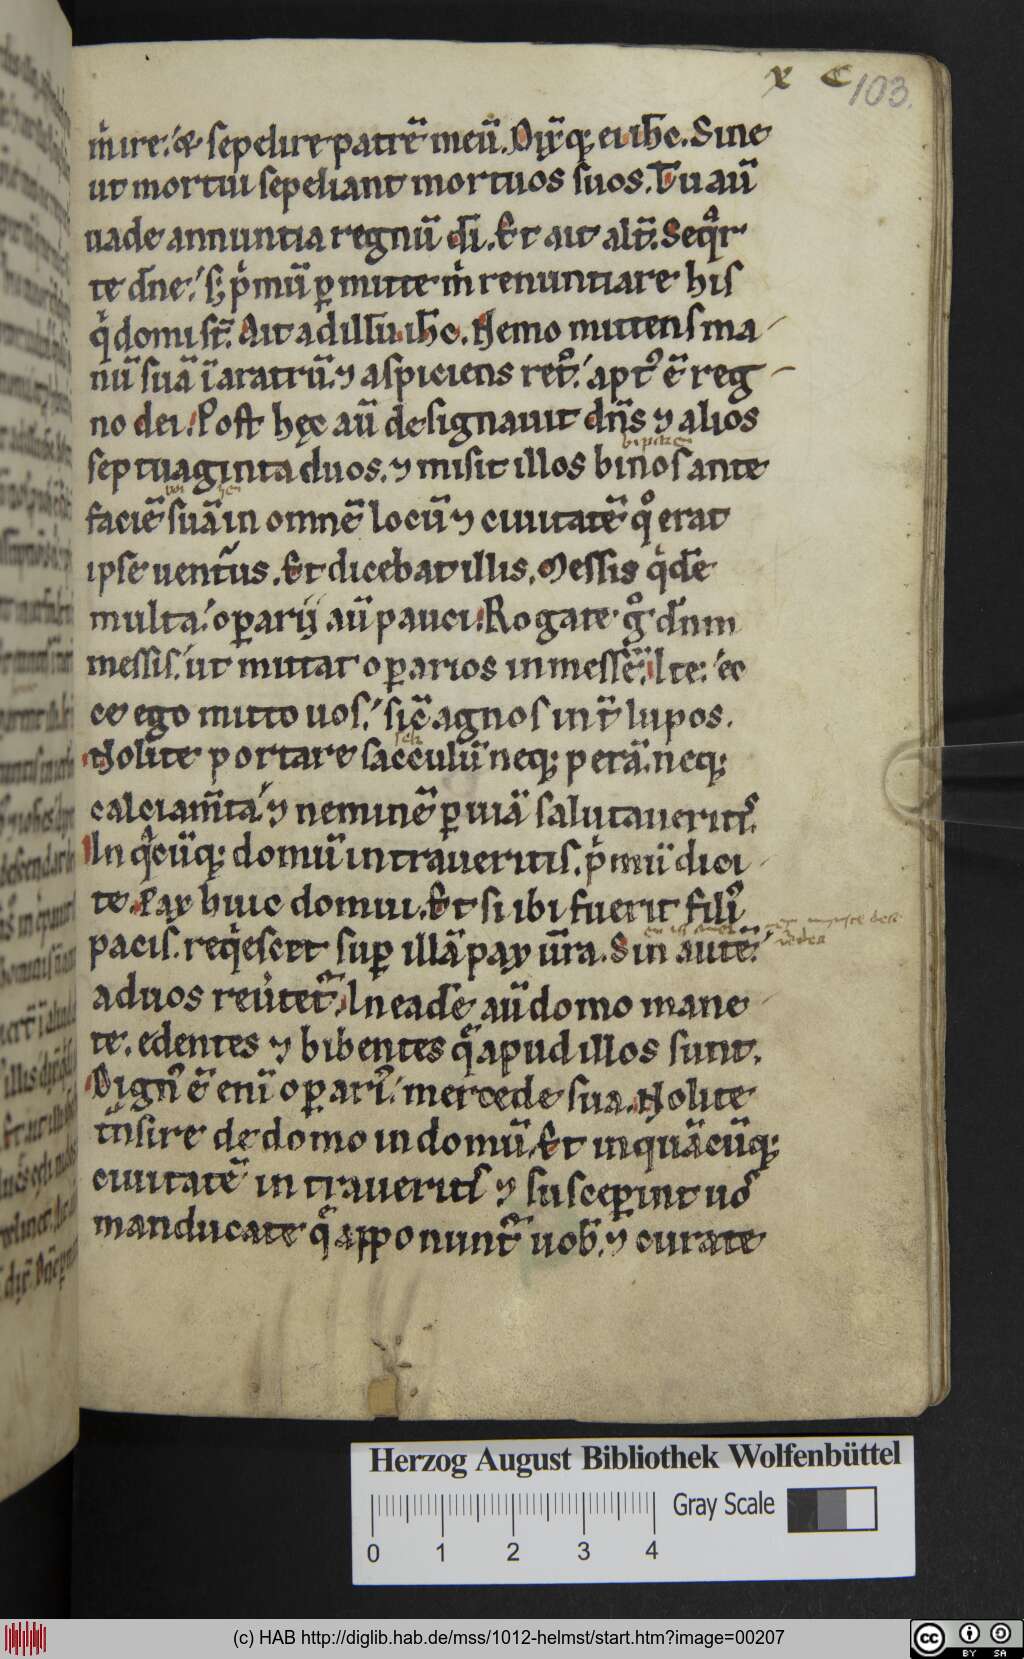 x C 103.
m̄ ire. ⁊ sepelire patrē meū. Dixitq; ei ih̄c. Sine
ut mortui sepeliant mortuos suos. Tu aū
uade annuntia regnū dī. Et ait alt̄. Seqͣr
te dn̄e. s; pͥmū ꝑmitte m̄ renuntiare his
qͥ domi st̄. Ait ad illū ih̄c. Nemo mittens ma
nū suā ī aratrū. ⁊ aspiciens ret°. apt᾽ ē reg
no dei. Post hęc aū designauit dn̄s ⁊ alios
septuaginta duos. ⁊ misit illos binos ante
faciē suā in omnē locū ⁊ ciuitatē qͦ erat
ipse uentur᾽us. Et dicebat illis. Messis qͥdē
multa. oꝑarij aū pauci. Rogate gͦ dn̄m
messis. ut mittat oꝑarios in messē. Ite. ec
ce ego mitto uos. sic̄ agnos int̄ lupos.
Nolite portare sacculū neq; perā. neq;
calciam̄ta. ⁊ neminē ꝑ uiā salutaueritis.
In qͣcūq; domū intraueritis. pͥmū dici
te. Pax huic domui. Et si ibi fuerit fili᾽
pacis. reqͥescet suꝑ illā pax ūra. Sin autē.
ad uos reuertet᾽. In eadē aū domo mane
te. edentes ⁊ bibentes qͤ apud illos sunt.
Dign᾽ ē enī oꝑari᾽ mercede sua. Nolite
tn̄sire de domo in domū. Et in quācūq;
ciuitatē intraueritis ⁊ susceꝑint uos
manducate qͤ apponunt᾽ uob̄. ⁊ curate
Herzog August Bibliothek Wolfenbüttel
Gray Scale
0 1 2 3 4
(c) HAB http://diglib.hab.de/mss/1012-helmst/start.htm?image=00207
cc BY SA